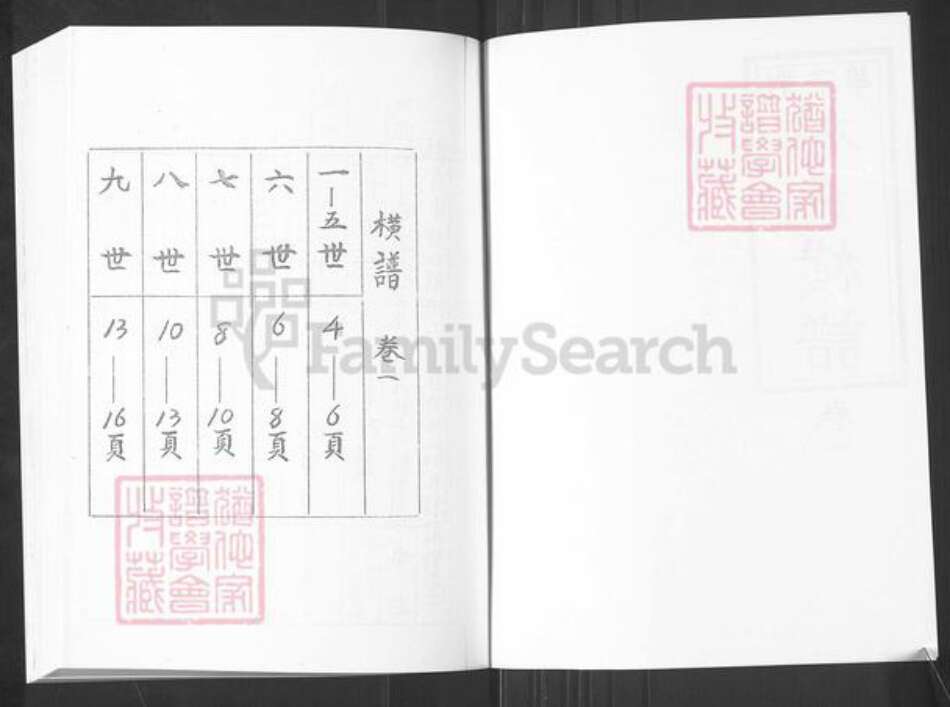 橫譜 卷一
一—五世 4——6頁
六世 6——8頁
七世 8——10頁
八世 10——13頁
九世 13——16頁
FamilySearch
猶他家
譜學會
收藏
猶他家
譜學會
收藏